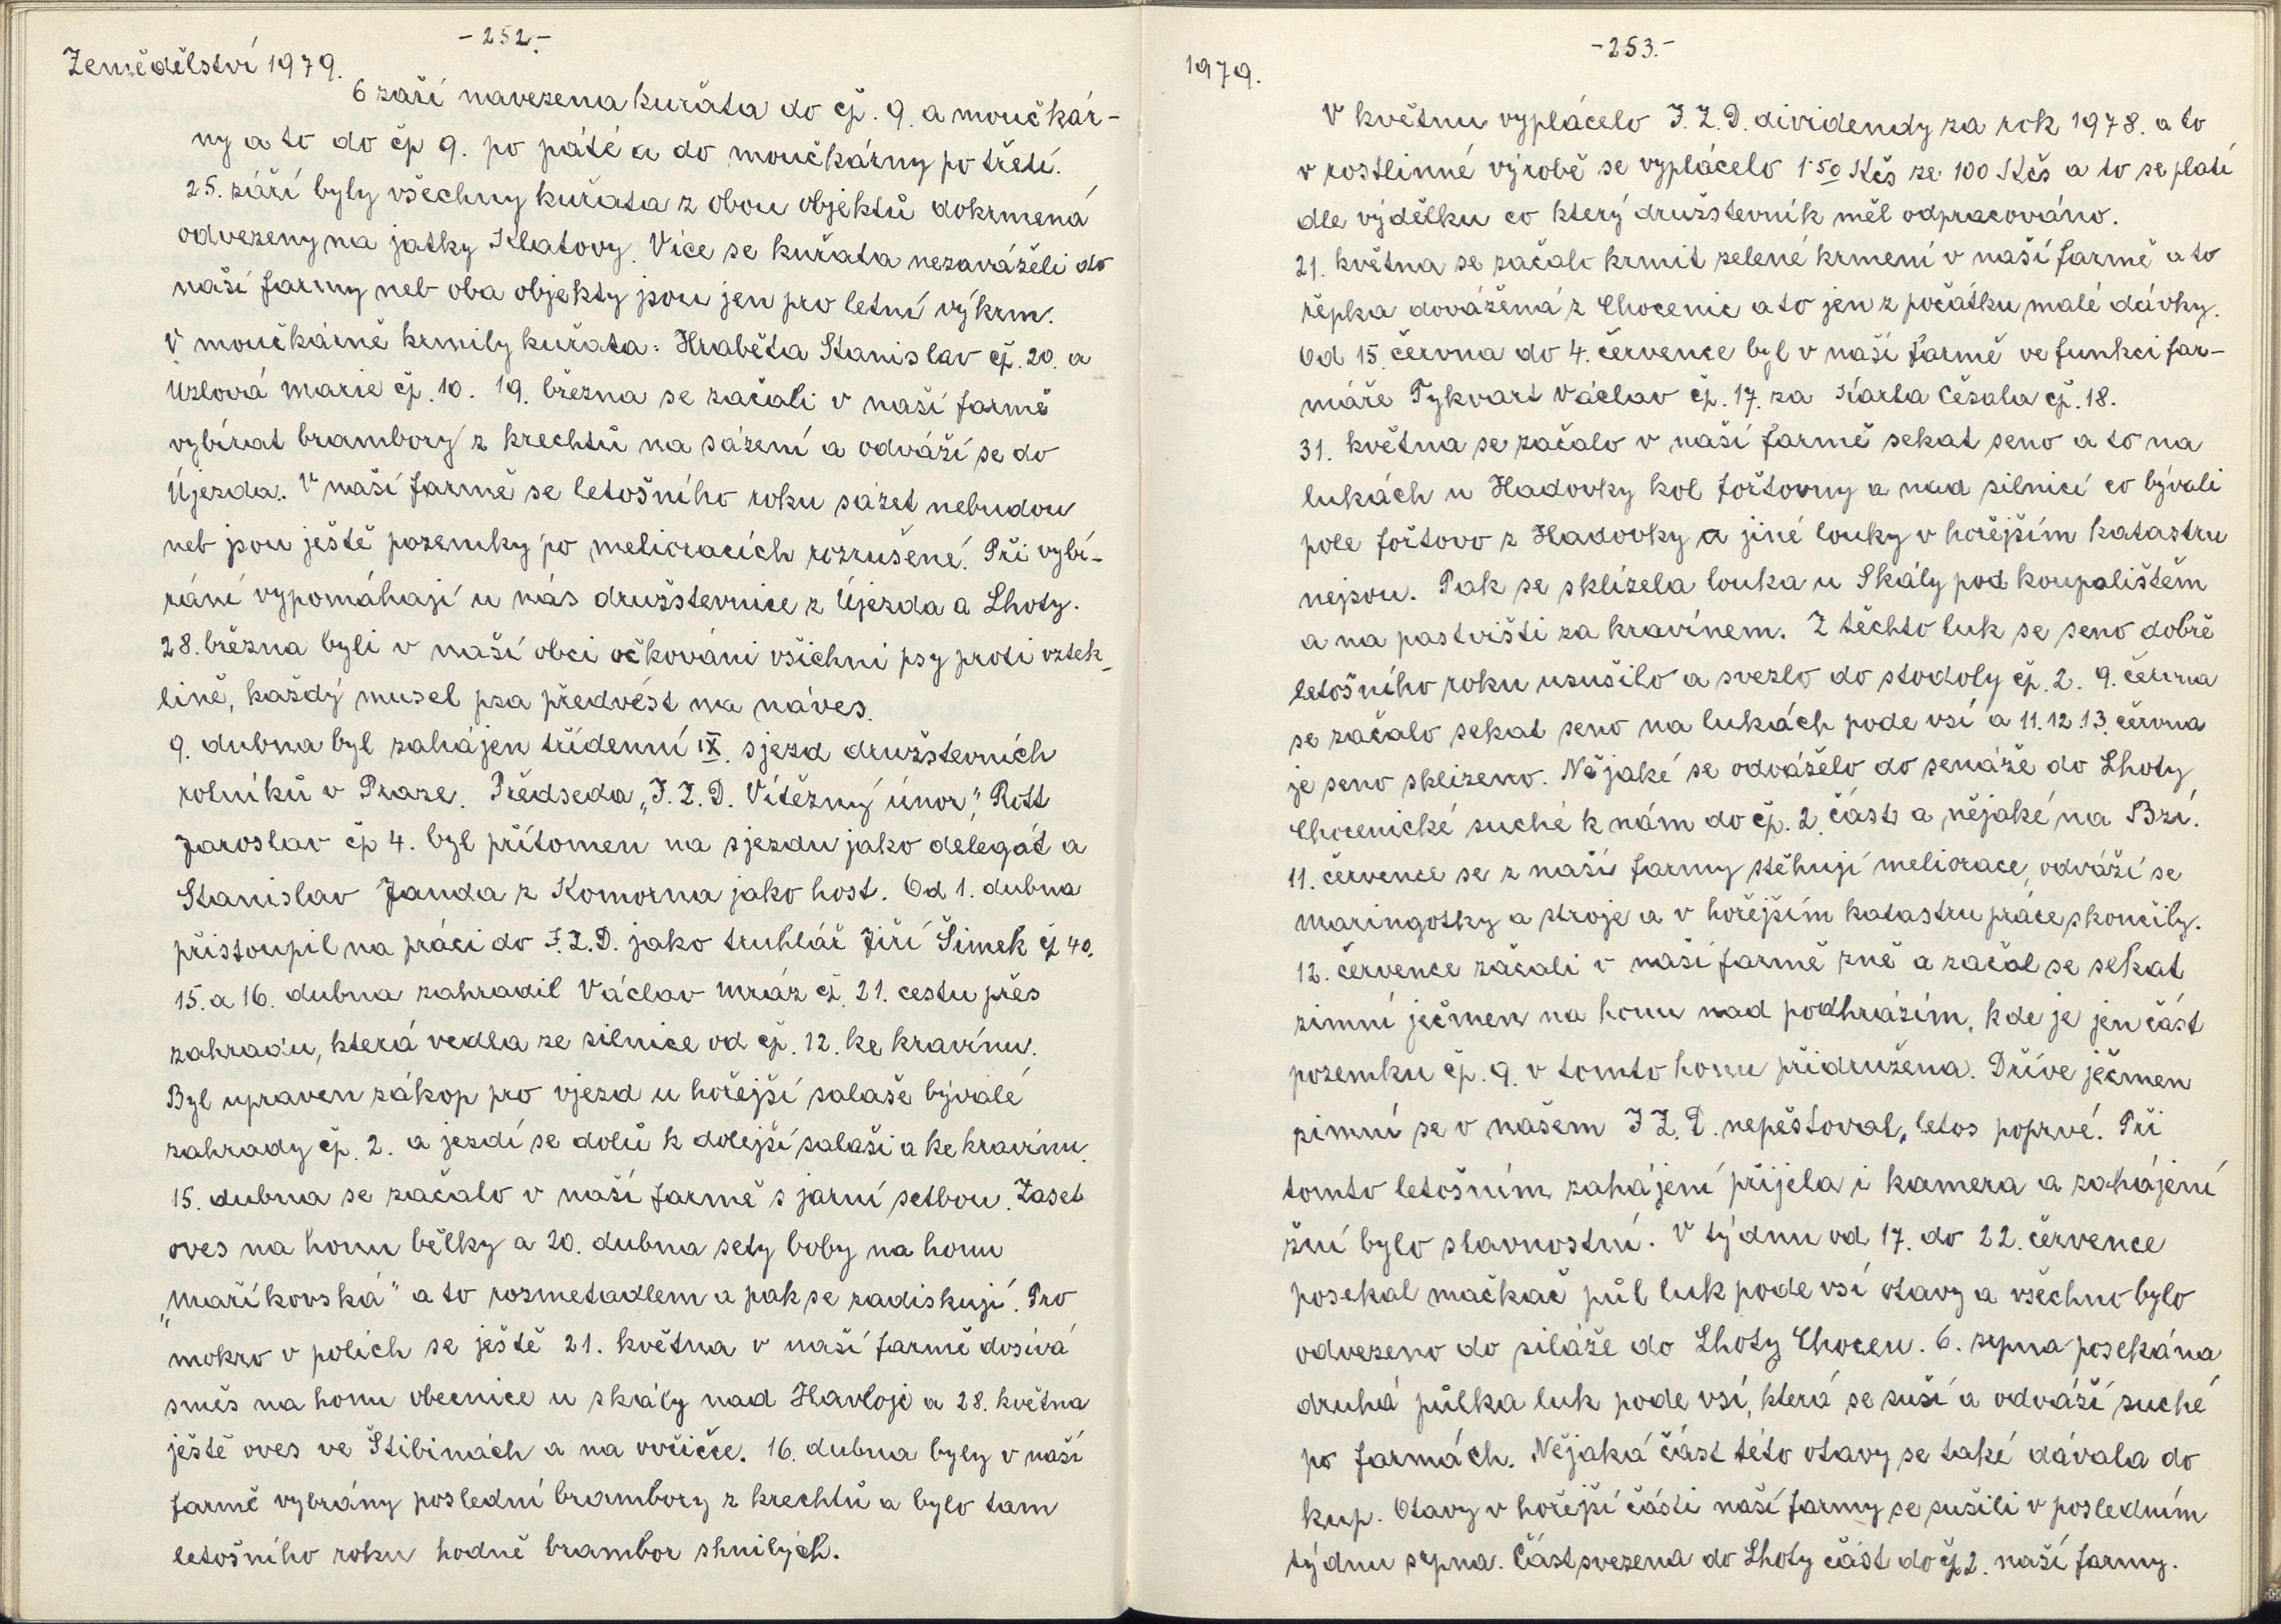 -252.-
Zemědělství 1979.
6 září navezena kuřata do čp. 9. a moučkár-
ny a to do čp 9. po páté a do moučkárny po třetí.
25. září byly všechny kuřata z obou objektů dokrmená
odvezeny na jatky Klatovy. Více se kuřata nezaváželi do
naší farmy neb oba objekty jsou jen pro letní výkrm.
V moučkárně krmily kuřata: Hraběta Stanislav čp. 20. a
Uzlová Marie čp. 10. 19. března se začali v naší farmě
vybírat brambory z krechtů na sázení a odváží se do
Újezda. V naší farmě se letošního roku sázet nebudou
neb jsou ještě pozemky po melioracích rozrušené. Při vybí-
rání vypomáhají u nás družstevnice z Újezda a Lhoty.
28. března byli v naší obci očkováni všichni psy proti vztek-
lině, každý musel psa předvést na náves.
9. dubna byl zahájen třídenní IX. sjezd družstevních
rolníků v Praze. Předseda „J.Z.D. Vítězný únor," Rott
Jaroslav čp 4. byl přítomen na sjezdu jako delegát a
Stanislav Janda z Komorna jako host. Od 1. dubna
přistoupil na práci do J.Z.D. jako truhlář Jiří Šimek čp 40.
15. a 16. dubna zahradil Václav Mráz čp. 21. cestu přes
zahradu, která vedla ze silnice od čp. 12. ke kravínu.
Byl upraven zákop pro vjezd u hořejší salaše bývalé
zahrady čp. 2. a jezdí se dolů k dolejší salaši a ke kravínu.
15. dubna se začalo v naší farmě s jarní setbou. Zaset
oves na honu bělky a 20. dubna sety boby na honu
„Maříkovská" a to rozmetadlem a pak se zadiskují. Pro
mokro v polích se ještě 21. května v naší farmě dosívá
směs na honu obecnice u skály nad Havloje a 28. května
ještě oves ve Štibinách a na ovčičce. 16. dubna byly v naší
farmě vybrány poslední brambory z krechtů a bylo tam
letošního roku hodně brambor shnilých.
-253.-
1979.
V květnu vyplácelo J.Z.D. dividendy za rok 1978. a to
v rostlinné výrobě se vyplácelo 1.50 Kčs ze 100 Kčs a to se platí
dle výdělku co který družstevník měl odpracováno.
21. května se začalo krmit zelené krmení v naší farmě a to
řepka dovážená z Chocenic a to jen z počátku malé dávky.
Od 15. června do 4. července byl v naší farmě ve funkci far-
máře Tykvart Václav čp. 17. za Karla Čěsala čp. 18.
31. května se začalo v naší farmě sekat seno a to na
lukách u Hadovky kol fořtovny a nad silnicí co bývali
pole fořtovo z Hadovky a jiné louky v hořejším katastru
nejsou. Pak se sklízela louka u Skály pod koupalištěm
a na pastvišti za kravínem. Z těchto luk se seno dobře
letošního roku usušilo a svezlo do stodoly čp. 2. 9. června
se začalo sekat seno na lukách pode vsí a 11. 12. 13. června
je seno sklizeno. Nějaké se odváželo do senáže do Lhoty
Chocenické suché k nám do čp. 2. část a nějaké na Bzí.
11. července se z naší farmy stěhují meliorace, odváží se
maringotky a stroje a v hořejším katastru práce skončily.
12. července začali v naší farmě žně a začal se sekat
zimní ječmen na honu nad podhrázím, kde je jen část
pozemku čp. 9. v tomto honu přidružena. Dříve ječmen
zimní se v našem J Z. D. nepěstoval, letos poprvé. Při
tomto letošním zahájení přijela i kamera a zahájení
žní bylo slavnostní. V týdnu od 17. do 22. července
posekal mačkač půl luk pode vsí otavy a všechno bylo
odvezeno do siláže do Lhoty Chocen. 6. srpna posekána
druhá půlka luk pode vsí, která se suší a odváží suché
po farmách. Nějaká část této otavy se také dávala do
kup. Otavy v hořejší části naší farmy se sušili v posledním
týdnu srpna. Část svezena do Lhoty část do čp 2. naší farmy.